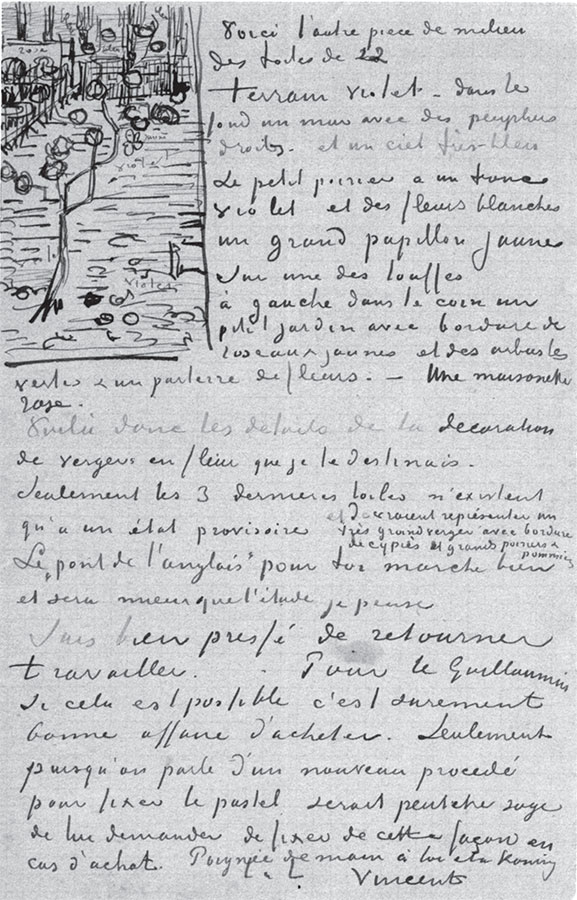 rose
violet
jaune
violet
Voici l'autre piece de milieu
des toiles de 12
terrain violet – dans le
fond un mur avec des peupliers
droits. et un ciel très-bleu
Le petit poirier a un tronc
violet et des fleurs blanches
un grand papillon jaune
sur une des touffes
à gauche dans le coin un
petit jardin avec bordure de
roseaux jaunes et des arbustes
verts & un parterre de fleurs. – Une maisonette
rose.
Voila donc les détails de la decoration
de vergers en fleur que je te destinais.
Seulement les 3 dernieres toiles n'existent
qu'a un état provisoire et devraient représenter un
très grand verger avec bordure
de cyprès et grands poiriers &
pommiers
Le „pont de l'anglais" pour toi marche bien
et sera mieux que l'étude je pense
Suis bien pressé de retourner
travailler. – Pour le Guillaumin
si cela est possible c'est surement
bonne affaire d'acheter. Seulement
puisqu'on parle d'un nouveau procedé
pour fixer le pastel serait peutetre sage
de lui demander de fixer de cette façon en
cas d'achat. Poignée de main à toi et a Koning
Vincent